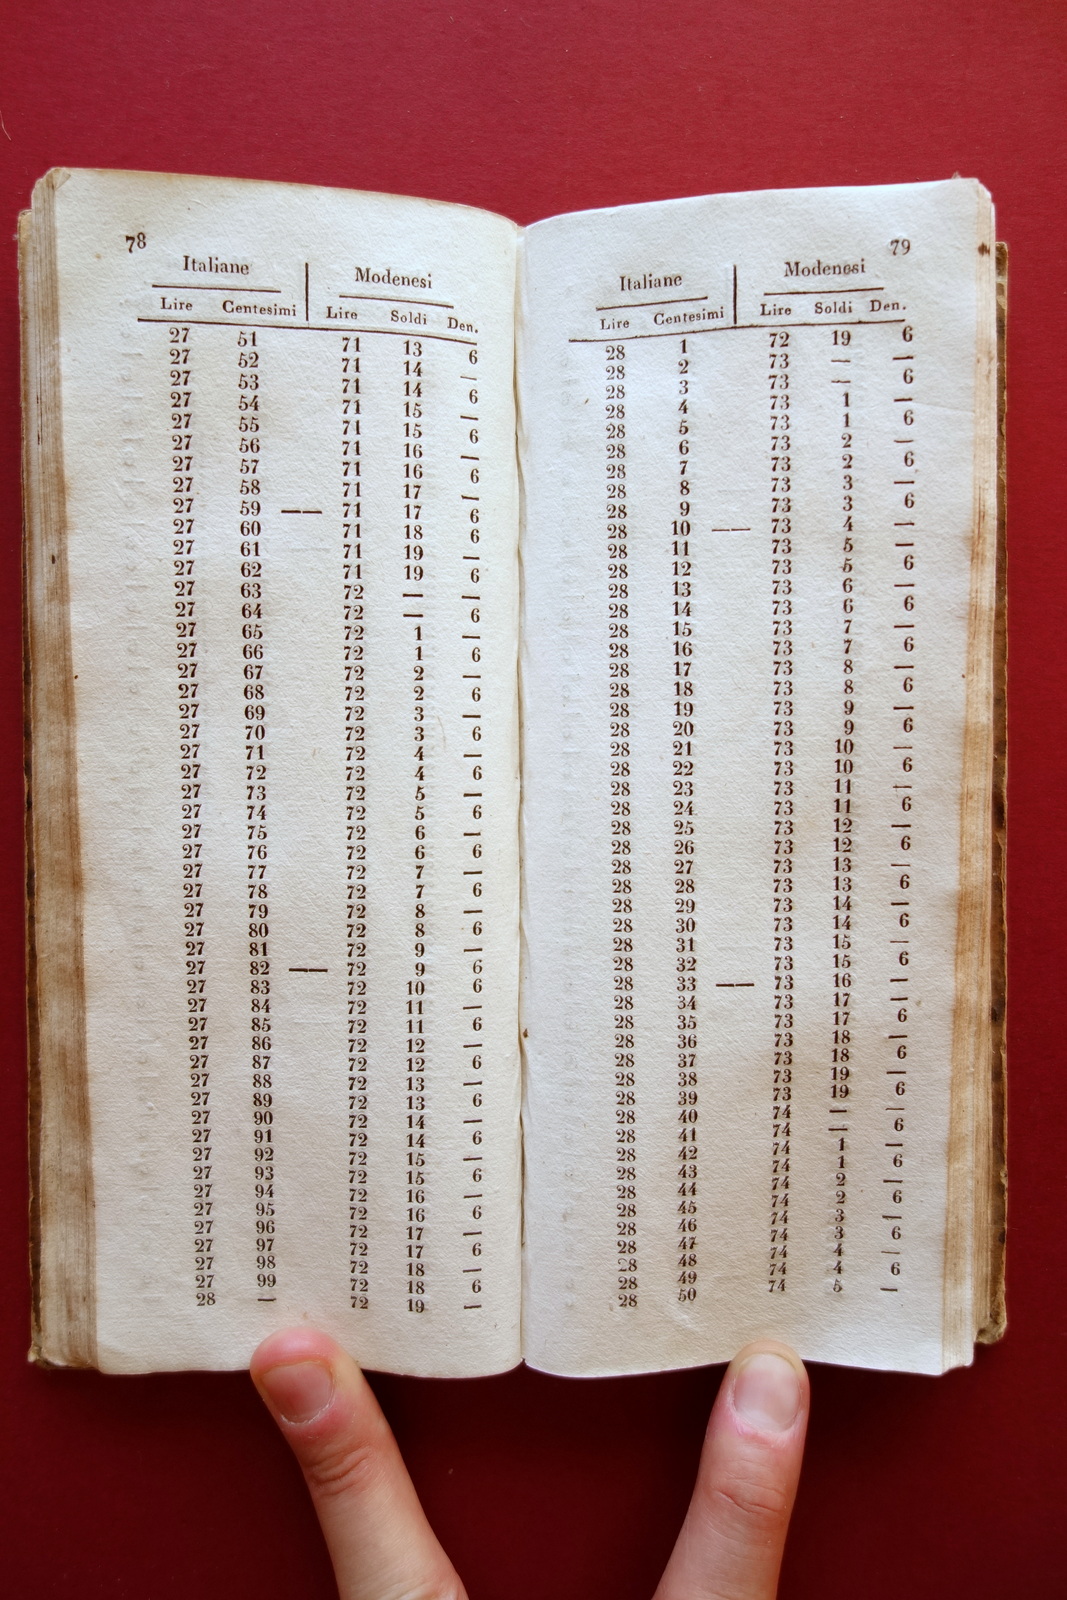 78
Italiane Modenesi
Lire Centesimi Lire Soldi Den.
27 51 71 13 6
27 52 71 14 —
27 53 71 14 6
27 54 71 15 —
27 55 71 15 6
27 56 71 16 —
27 57 71 16 6
27 58 71 17 —
27 59 —— 71 17 6
27 60 71 18 6
27 61 71 19 —
27 62 71 19 6
27 63 72 — —
27 64 72 — 6
27 65 72 1 —
27 66 72 1 6
27 67 72 2 —
27 68 72 2 6
27 69 72 3 —
27 70 72 3 6
27 71 72 4 —
27 72 72 4 6
27 73 72 5 —
27 74 72 5 6
27 75 72 6 —
27 76 72 6 6
27 77 72 7 —
27 78 72 7 6
27 79 72 8 —
27 80 72 8 6
27 81 72 9 —
27 82 —— 72 9 6
27 83 72 10 6
27 84 72 11 —
27 85 72 11 6
27 86 72 12 —
27 87 72 12 6
27 88 72 13 —
27 89 72 13 6
27 90 72 14 —
27 91 72 14 6
27 92 72 15 —
27 93 72 15 6
27 94 72 16 —
27 95 72 16 6
27 96 72 17 —
27 97 72 17 6
27 98 72 18 —
27 99 72 18 6
28 — 72 19 —
79
Italiane Modenesi
Lire Centesimi Lire Soldi Den.
28 1 72 19 6
28 2 73 — —
28 3 73 — 6
28 4 73 1 —
28 5 73 1 6
28 6 73 2 —
28 7 73 2 6
28 8 73 3 —
28 9 73 3 6
28 10 —— 73 4 —
28 11 73 5 —
28 12 73 5 6
28 13 73 6 —
28 14 73 6 6
28 15 73 7 —
28 16 73 7 6
28 17 73 8 —
28 18 73 8 6
28 19 73 9 —
28 20 73 9 6
28 21 73 10 —
28 22 73 10 6
28 23 73 11 —
28 24 73 11 6
28 25 73 12 —
28 26 73 12 6
28 27 73 13 —
28 28 73 13 6
28 29 73 14 —
28 30 73 14 6
28 31 73 15 —
28 32 73 15 6
28 33 —— 73 16 —
28 34 73 17 —
28 35 73 17 6
28 36 73 18 —
28 37 73 18 6
28 38 73 19 —
28 39 73 19 6
28 40 74 — —
28 41 74 — 6
28 42 74 1 —
28 43 74 1 6
28 44 74 2 —
28 45 74 2 6
28 46 74 3 —
28 47 74 3 6
28 48 74 4 —
28 49 74 4 6
28 50 74 5 —